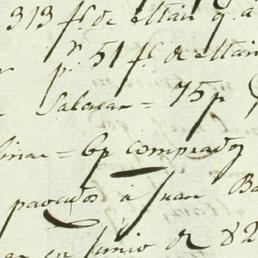 313 fs. de ettari q. a
pr. 51 fs. de ettari
Salazar = 75p
linar = 6p comprados
pavados à Juan Ba
en Junio de 82